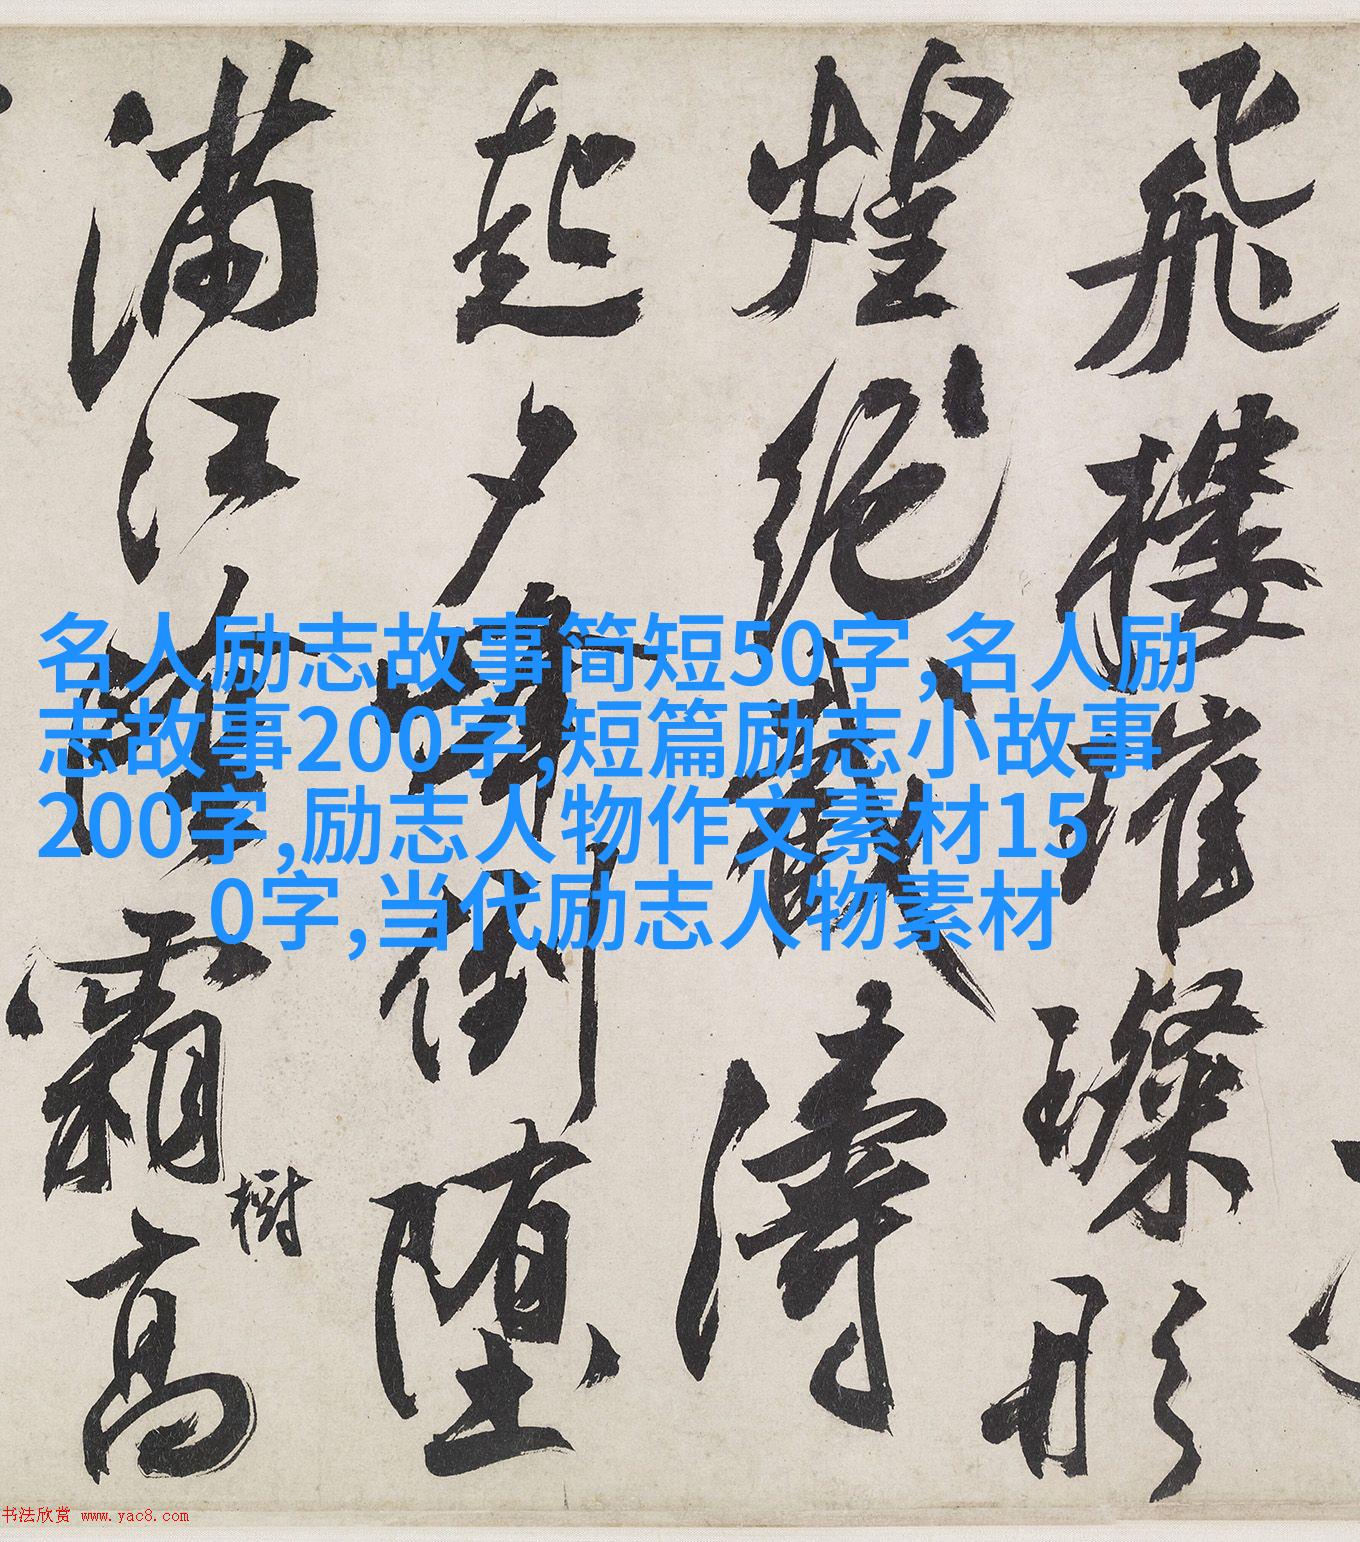 名人励志故事简短50字,名人励
志故事200字,短篇励志小故事
200字,励志人物作文素材15
0字,当代励志人物素材
飛樓璀璨形
煌絕截濤
起夕倒墮
滿江陰霜高
樹
书法欣赏 www.yac8.com